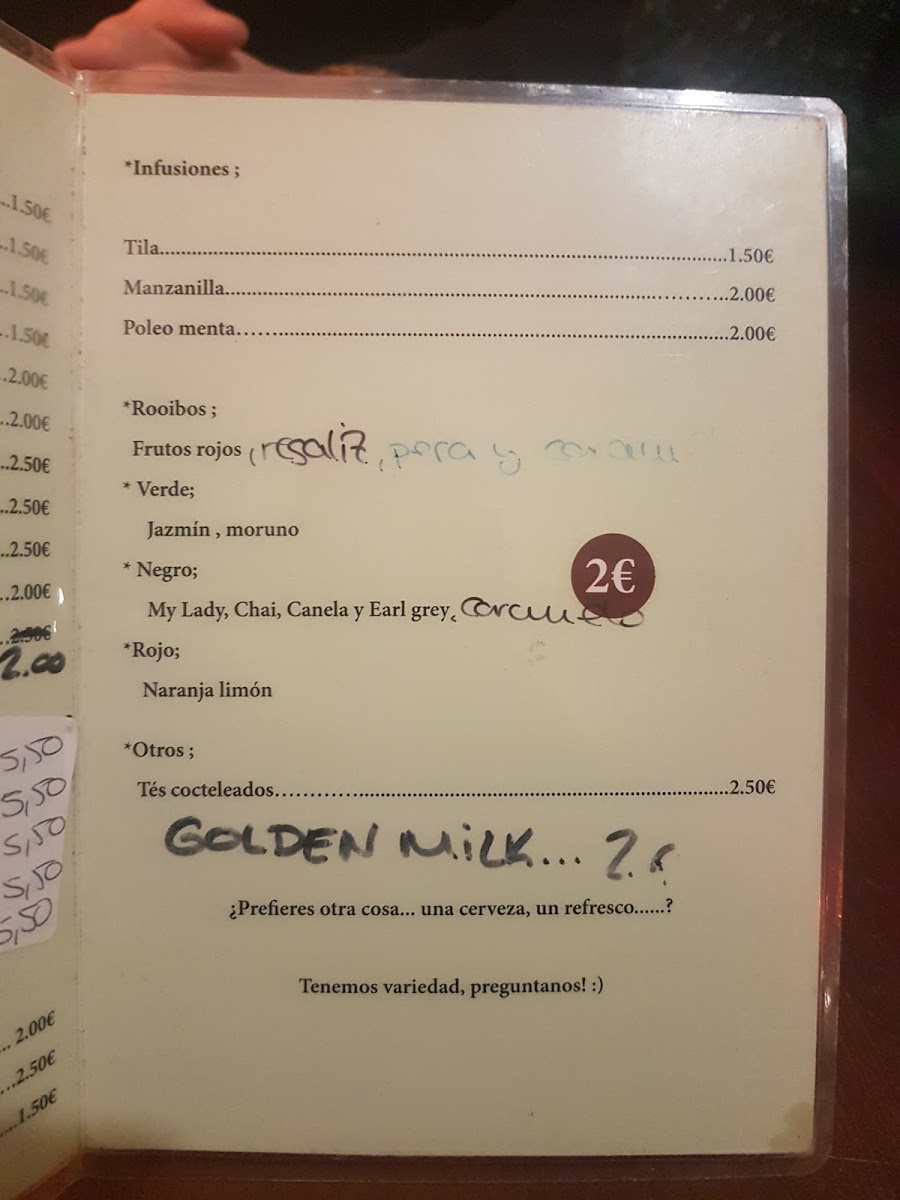 ..1.50€
..1.50€
..1.50€
..1.50€
..2.00€
..2.00€
..2.50€
..2.50€
..2.50€
..2.00€
..2.50€
2.00
5,50
5,50
5,50
5,50
5,50
... 2.00€
...2.50€
....1.50€
*Infusiones ;
Tila..........1.50€
Manzanilla..........2.00€
Poleo menta..........2.00€
*Rooibos ;
Frutos rojos , regaliz, pera y
* Verde;
Jazmín , moruno
* Negro;
2€
My Lady, Chai, Canela y Earl grey, caramelo
*Rojo;
Naranja limón
*Otros ;
Tés cocteleados..........2.50€
GOLDEN MiLK... 2.
¿Prefieres otra cosa... una cerveza, un refresco......?
Tenemos variedad, preguntanos! :)